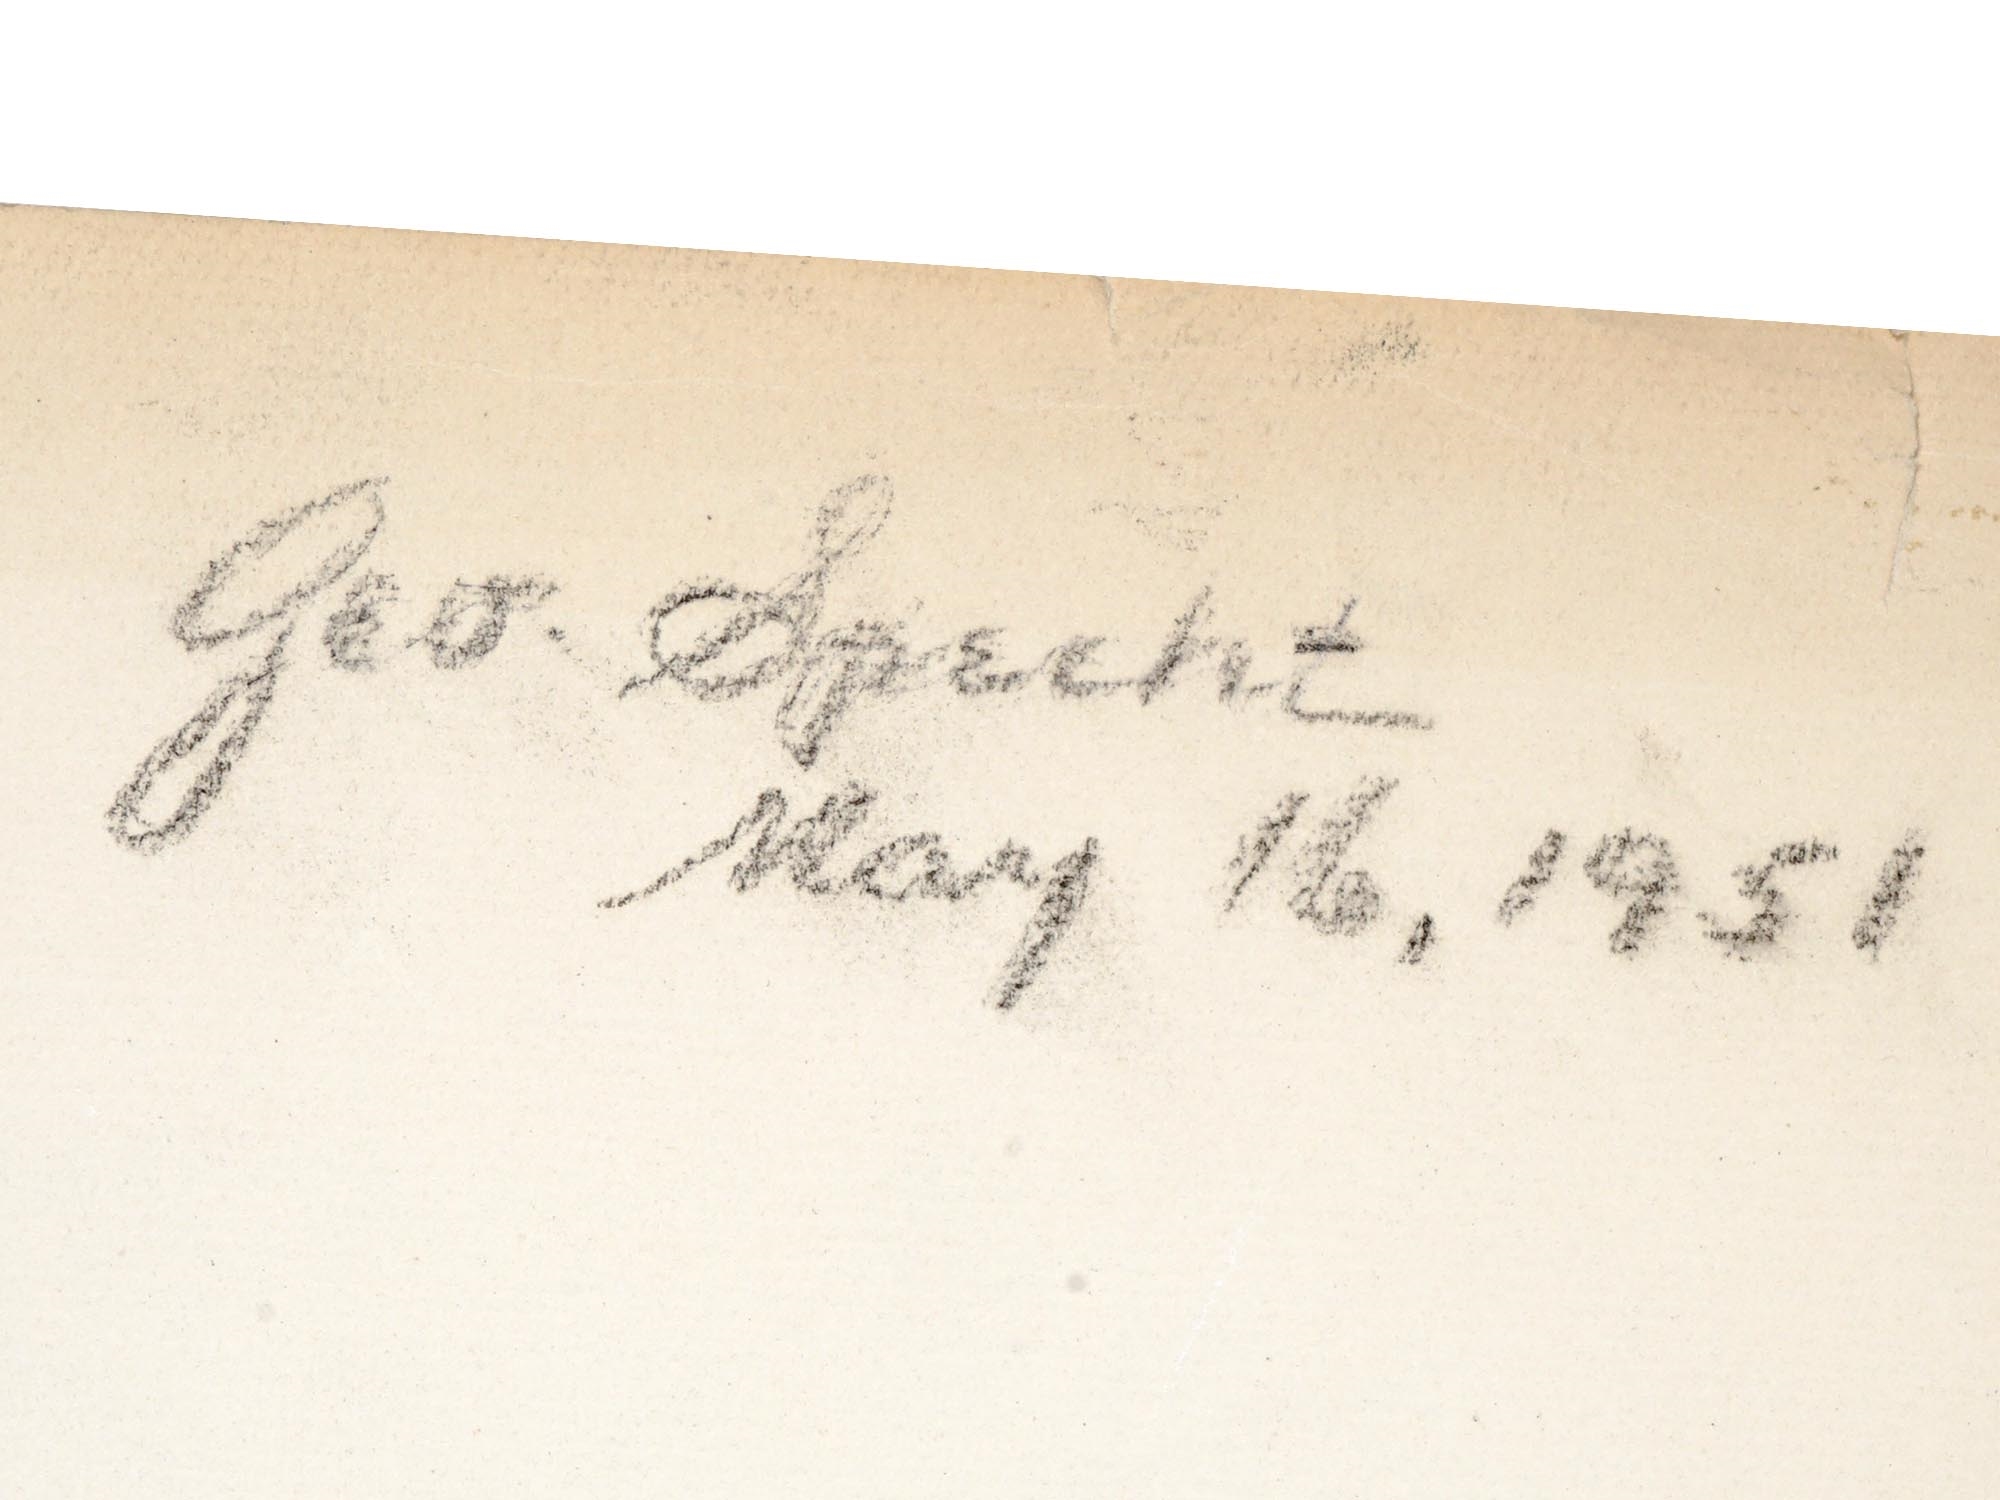 Geo. Specht
May 16, 1951